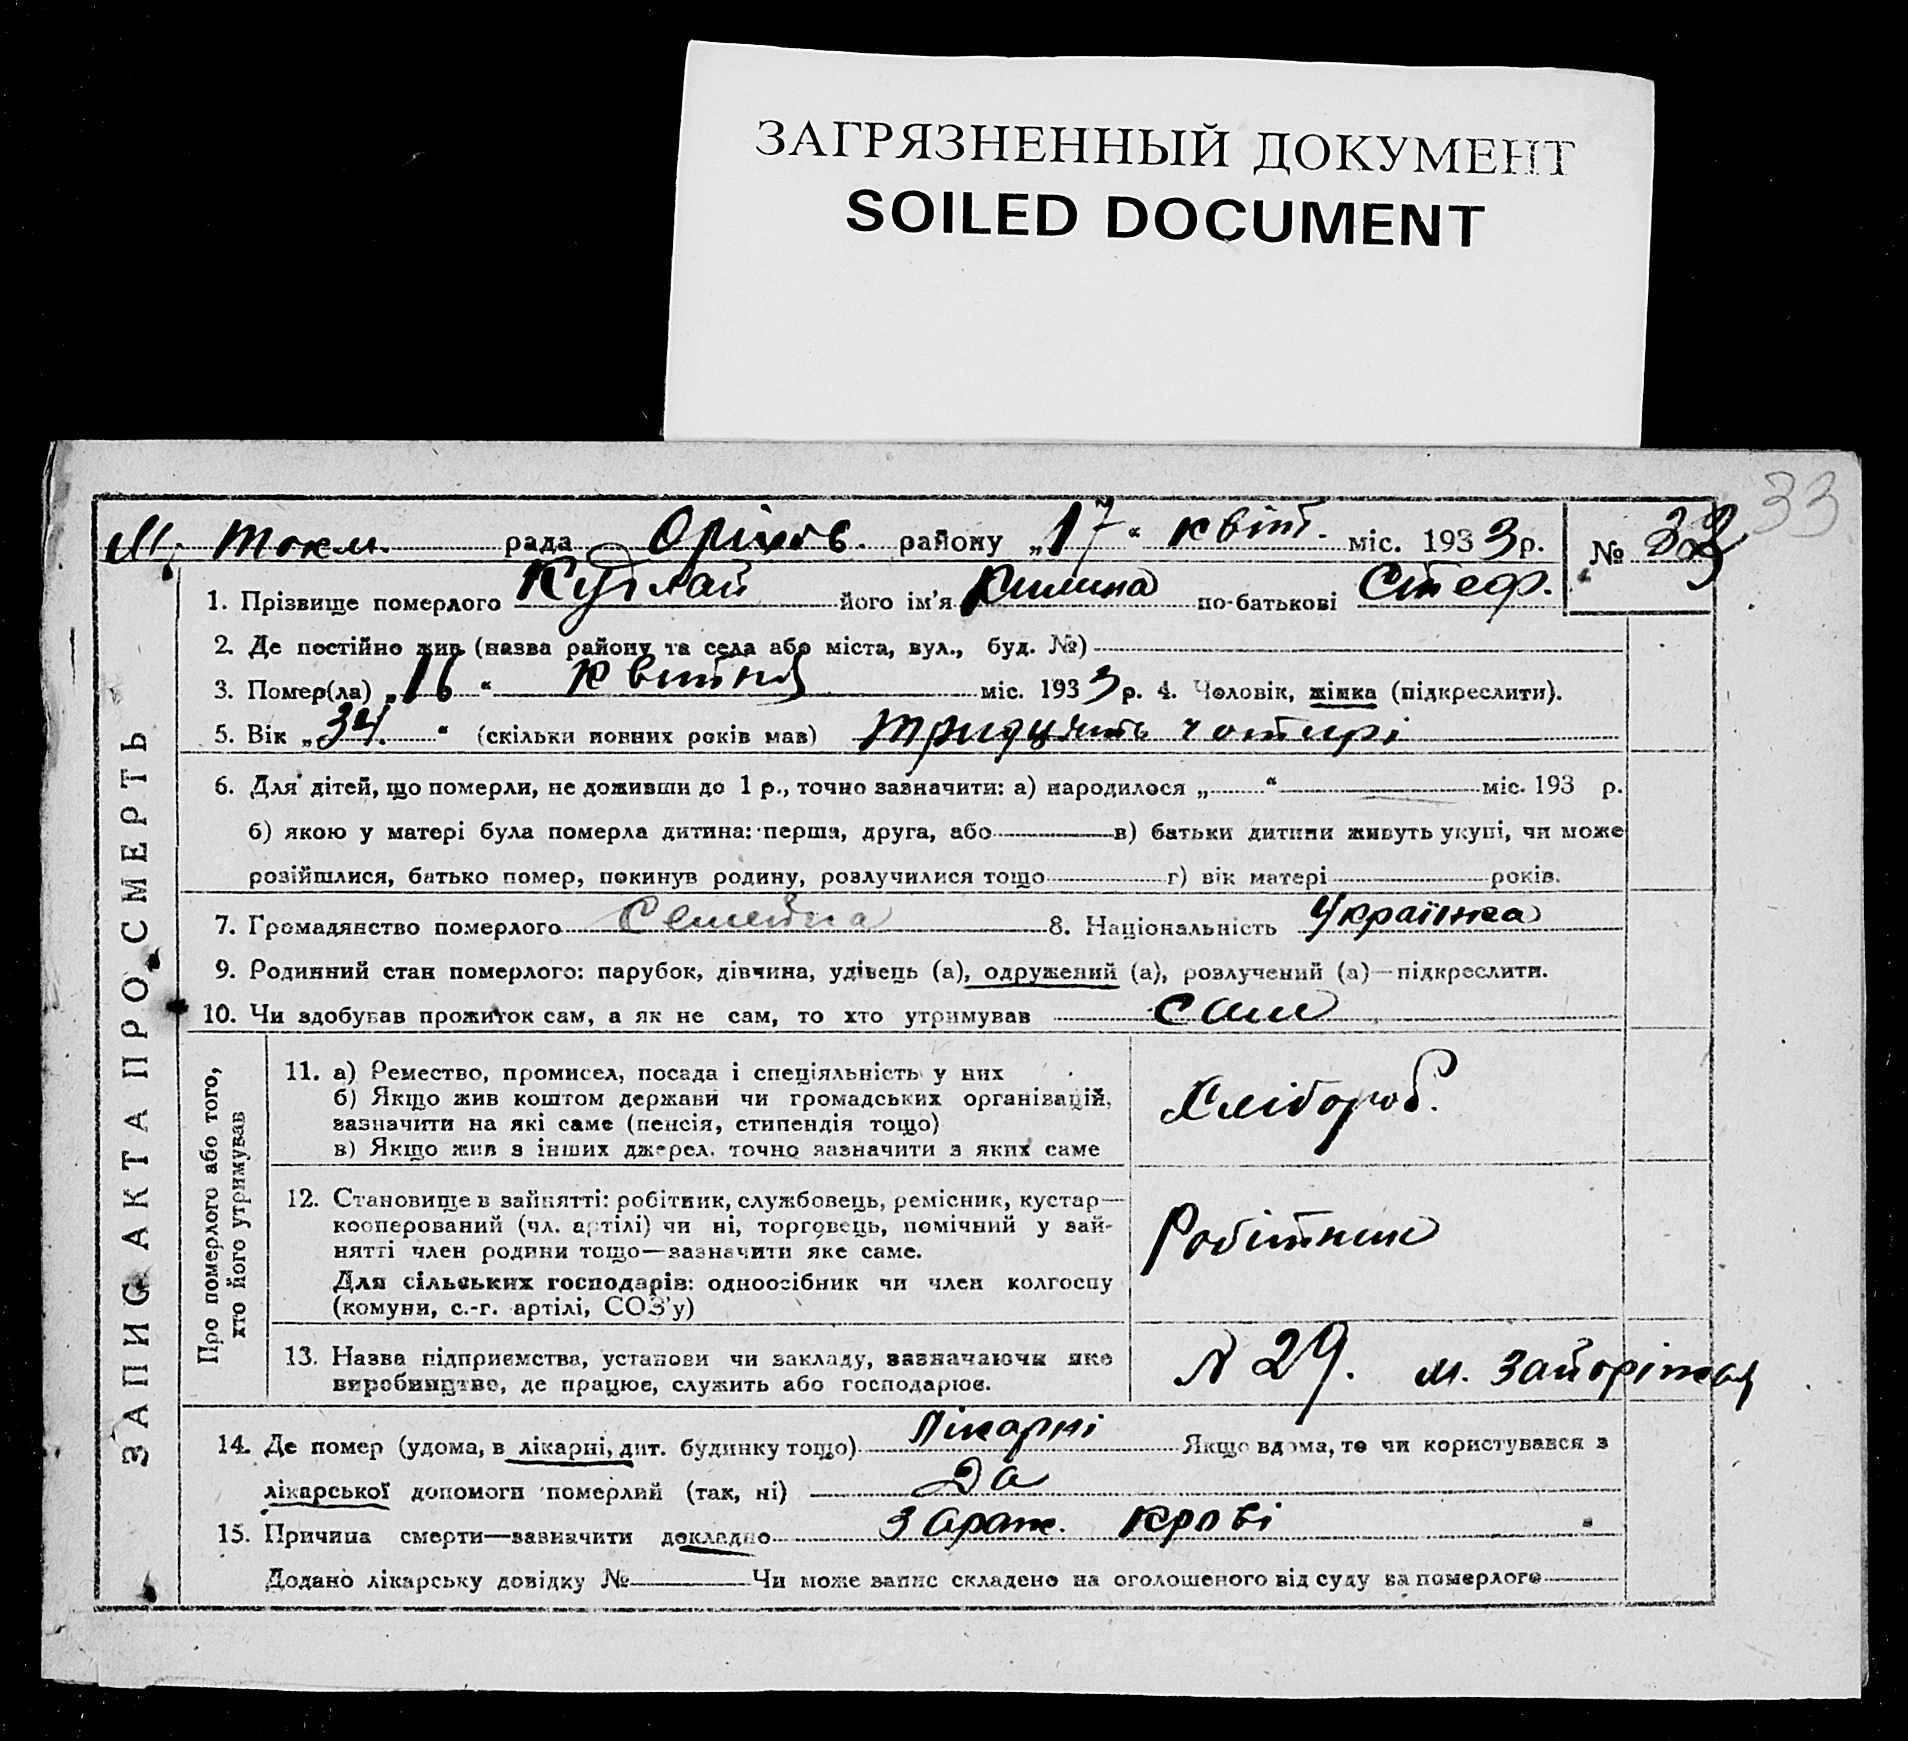 ЗАГРЯЗНЕННЫЙ ДОКУМЕНТ
SOILED DOCUMENT
33
М. Токм. рада Оріхов. району „17“ квіт. міс. 1933 р. № 33
1. Прізвище померлого його ім'я Килина по-батькові Стеф.
2. Де постійно жив (назва району та села або міста, вул., буд. №)
3. Помер(ла) „16“ квітня міс. 1933 р. 4. Чоловік, жінка (підкреслити).
5. Вік „34.“ (скільки повних років мав) тридцять чотирі
6. Для дітей, що померли, не доживши до 1 р., точно зазначити: а) народилося „ “ міс. 193 р.
б) якою у матері була померла дитина: перша, друга, або в) батьки дитини живуть укупі, чи може
розійшлися, батько помер, покинув родину, розлучилися тощо г) вік матері років.
7. Громадянство померлого 8. Національність Українка
9. Родинний стан померлого: парубок, дівчина, удівець (а), одружений (а), розлучений (а)—підкреслити.
10. Чи здобував прожиток сам, а як не сам, то хто утримував сам
ЗАПИС АКТА ПРО СМЕРТЬ
Про померлого або того,
хто його утримував
11. а) Ремество, промисел, посада і спеціяльність у них
б) Якщо жив коштом держави чи громадських організацій,
зазначити на які саме (пенсія, стипендія тощо)
в) Якщо жив з інших джерел, точно зазначити з яких саме
Хлібороб.
12. Становище в зайнятті: робітник, службовець, ремісник, кустар—
кооперований (чл. артілі) чи ні, торговець, помічний у зай-
нятті член родини тощо—зазначити яке саме.
Для сільських господарів: одноосібник чи член колгоспу
(комуни, с.-г. артілі, СОЗ'у)
Робітник
13. Назва підприємства, установи чи закладу, зазначаючи яке
виробництво, де працює, служить або господарює.
№ 29. м. Запоріжжя
14. Де помер (удома, в лікарні, дит. будинку тощо) Лікарні Якщо вдома, то чи користувався з
лікарської допомоги померлий (так, ні) Да
15. Причина смерти—зазначити докладно Зараж. крові
Додано лікарську довідку № Чи може запис складено на оголошеного від суду за померлого